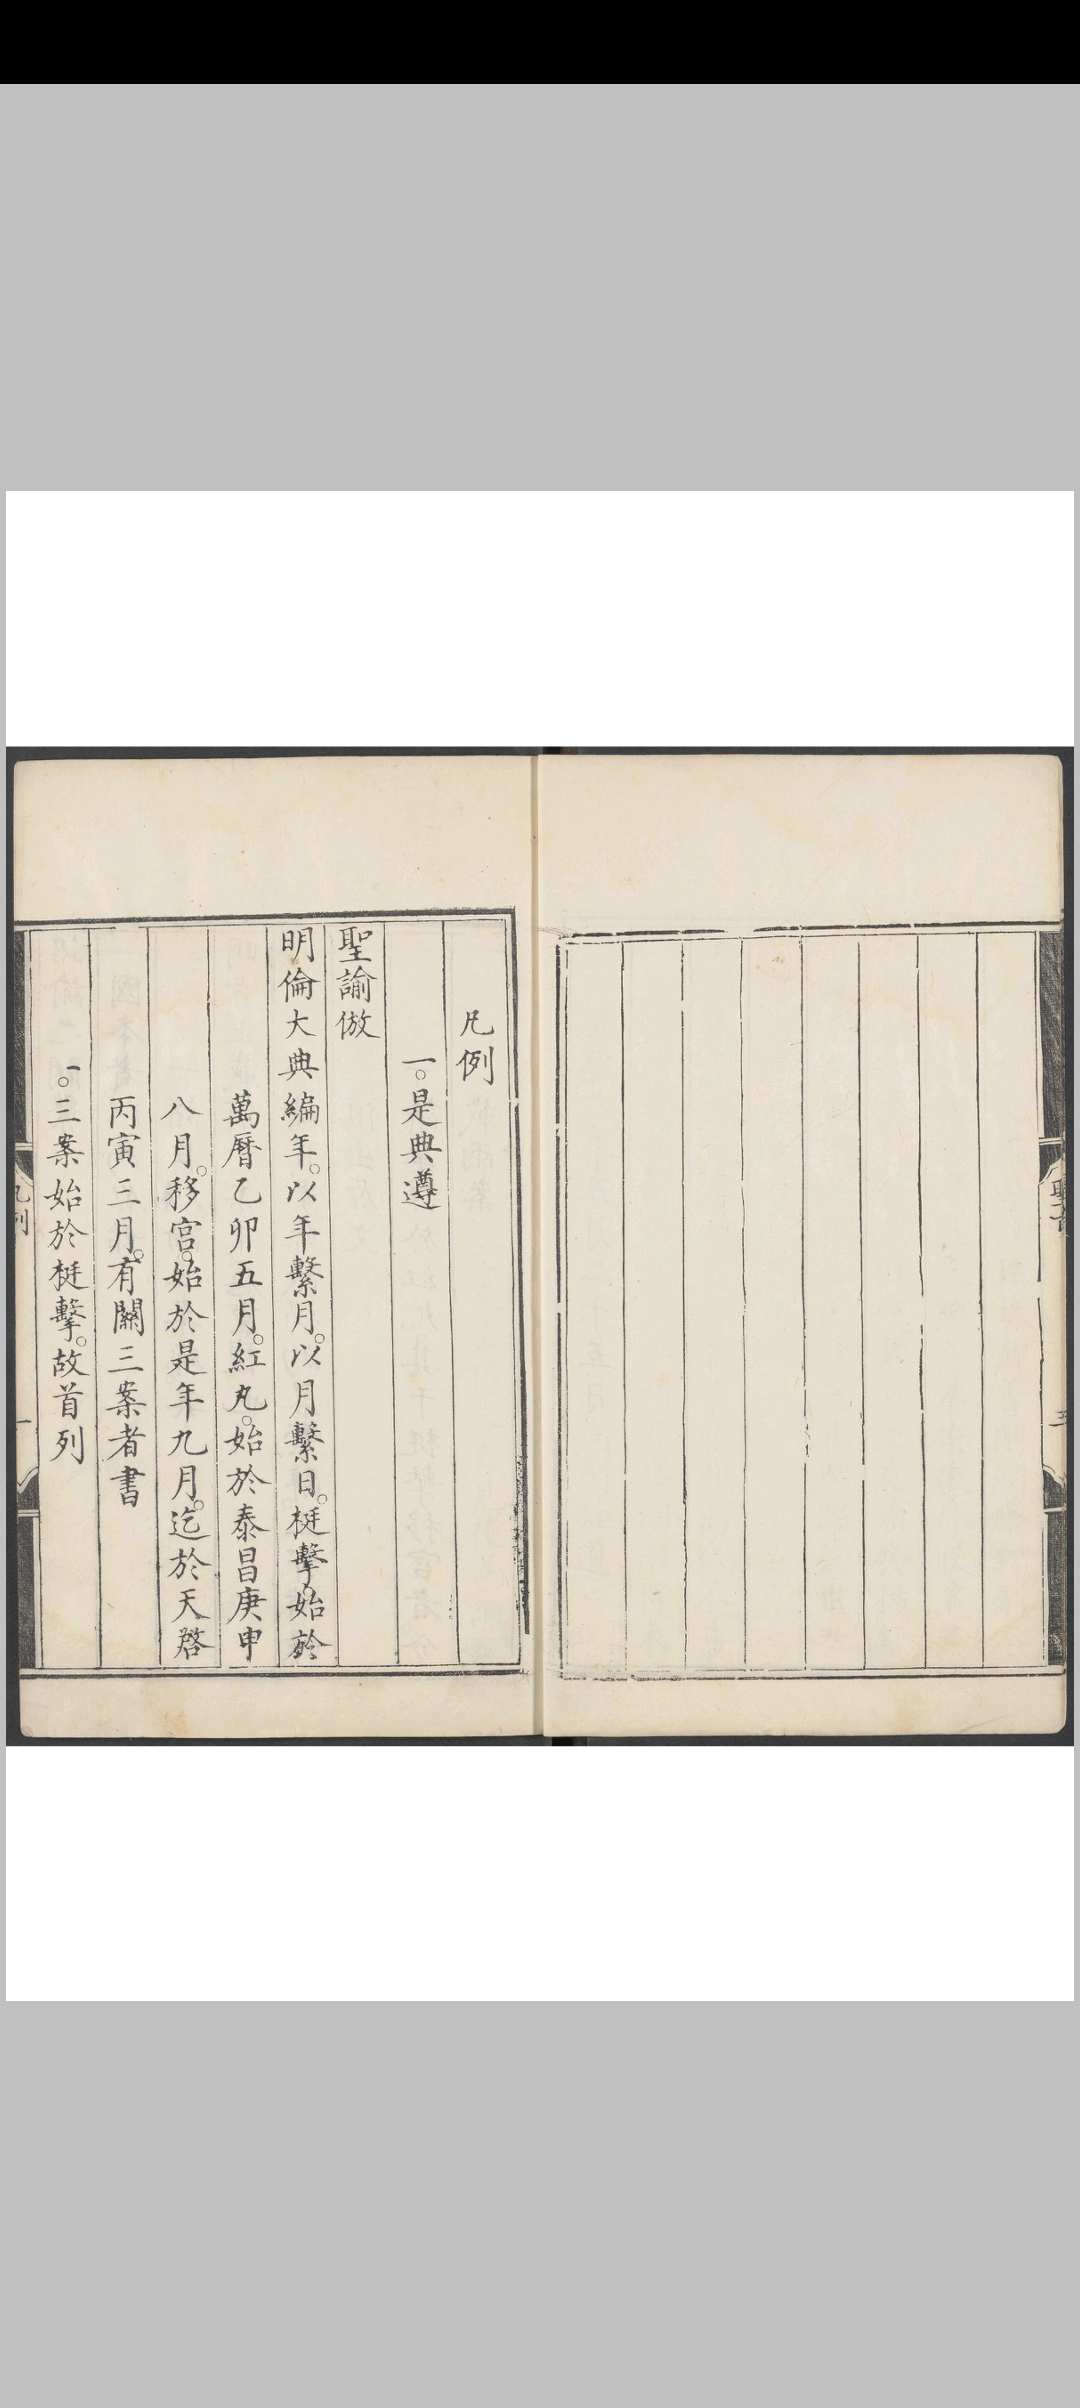 凡例
一。是典遵
聖諭倣
明倫大典編年。以年繫月。以月繫日。梃擊。始於
萬曆乙卯五月。紅丸。始於泰昌庚申
八月。移宮。始於是年九月。迄於天啓
丙寅三月。有關三案者書
一。三案始於梃擊。故首列
凡例
一